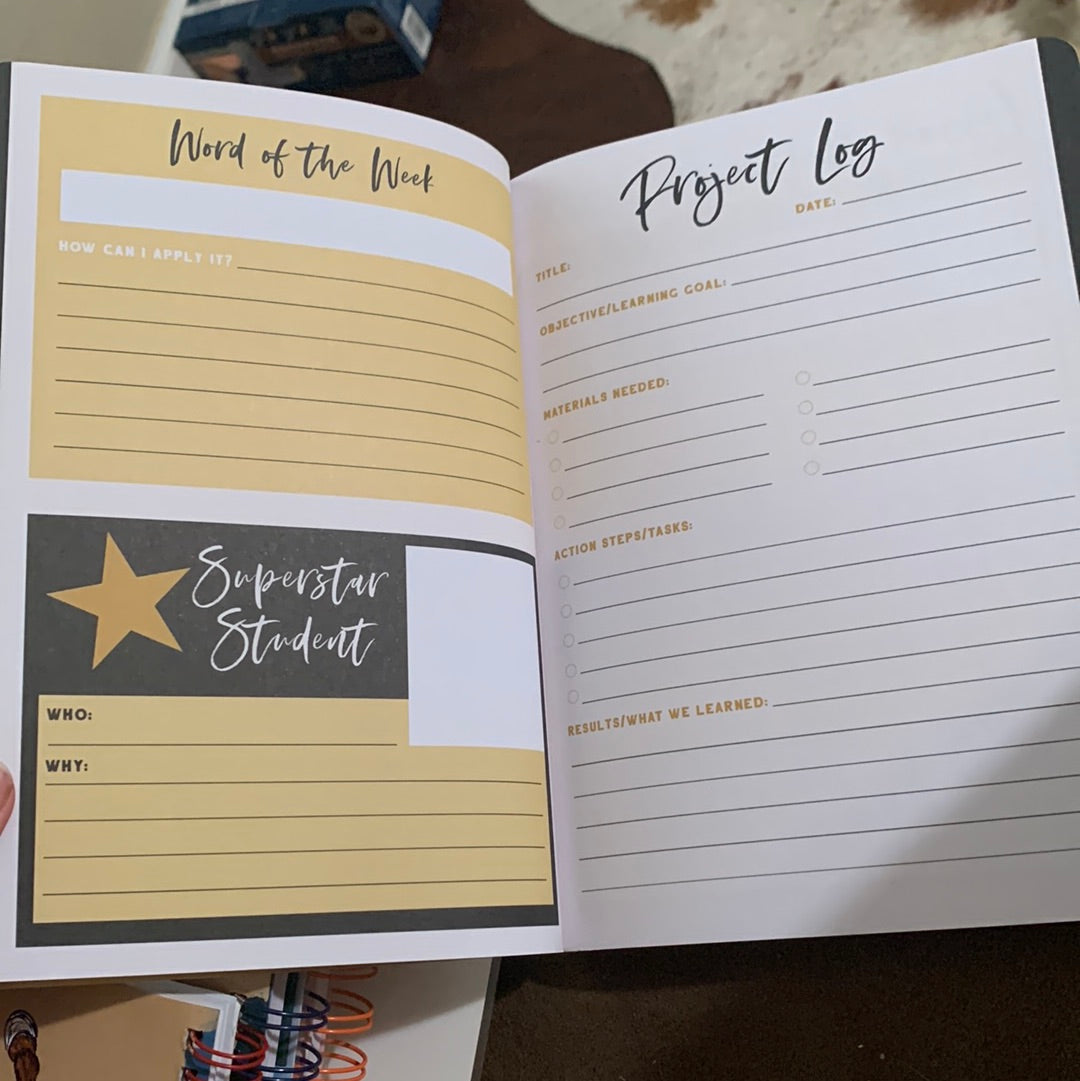 Word of the Week
HOW CAN I APPLY IT?
Superstar
Student
WHO:
WHY:
Project Log
DATE:
TITLE:
OBJECTIVE/LEARNING GOAL:
MATERIALS NEEDED:
ACTION STEPS/TASKS:
RESULTS/WHAT WE LEARNED: